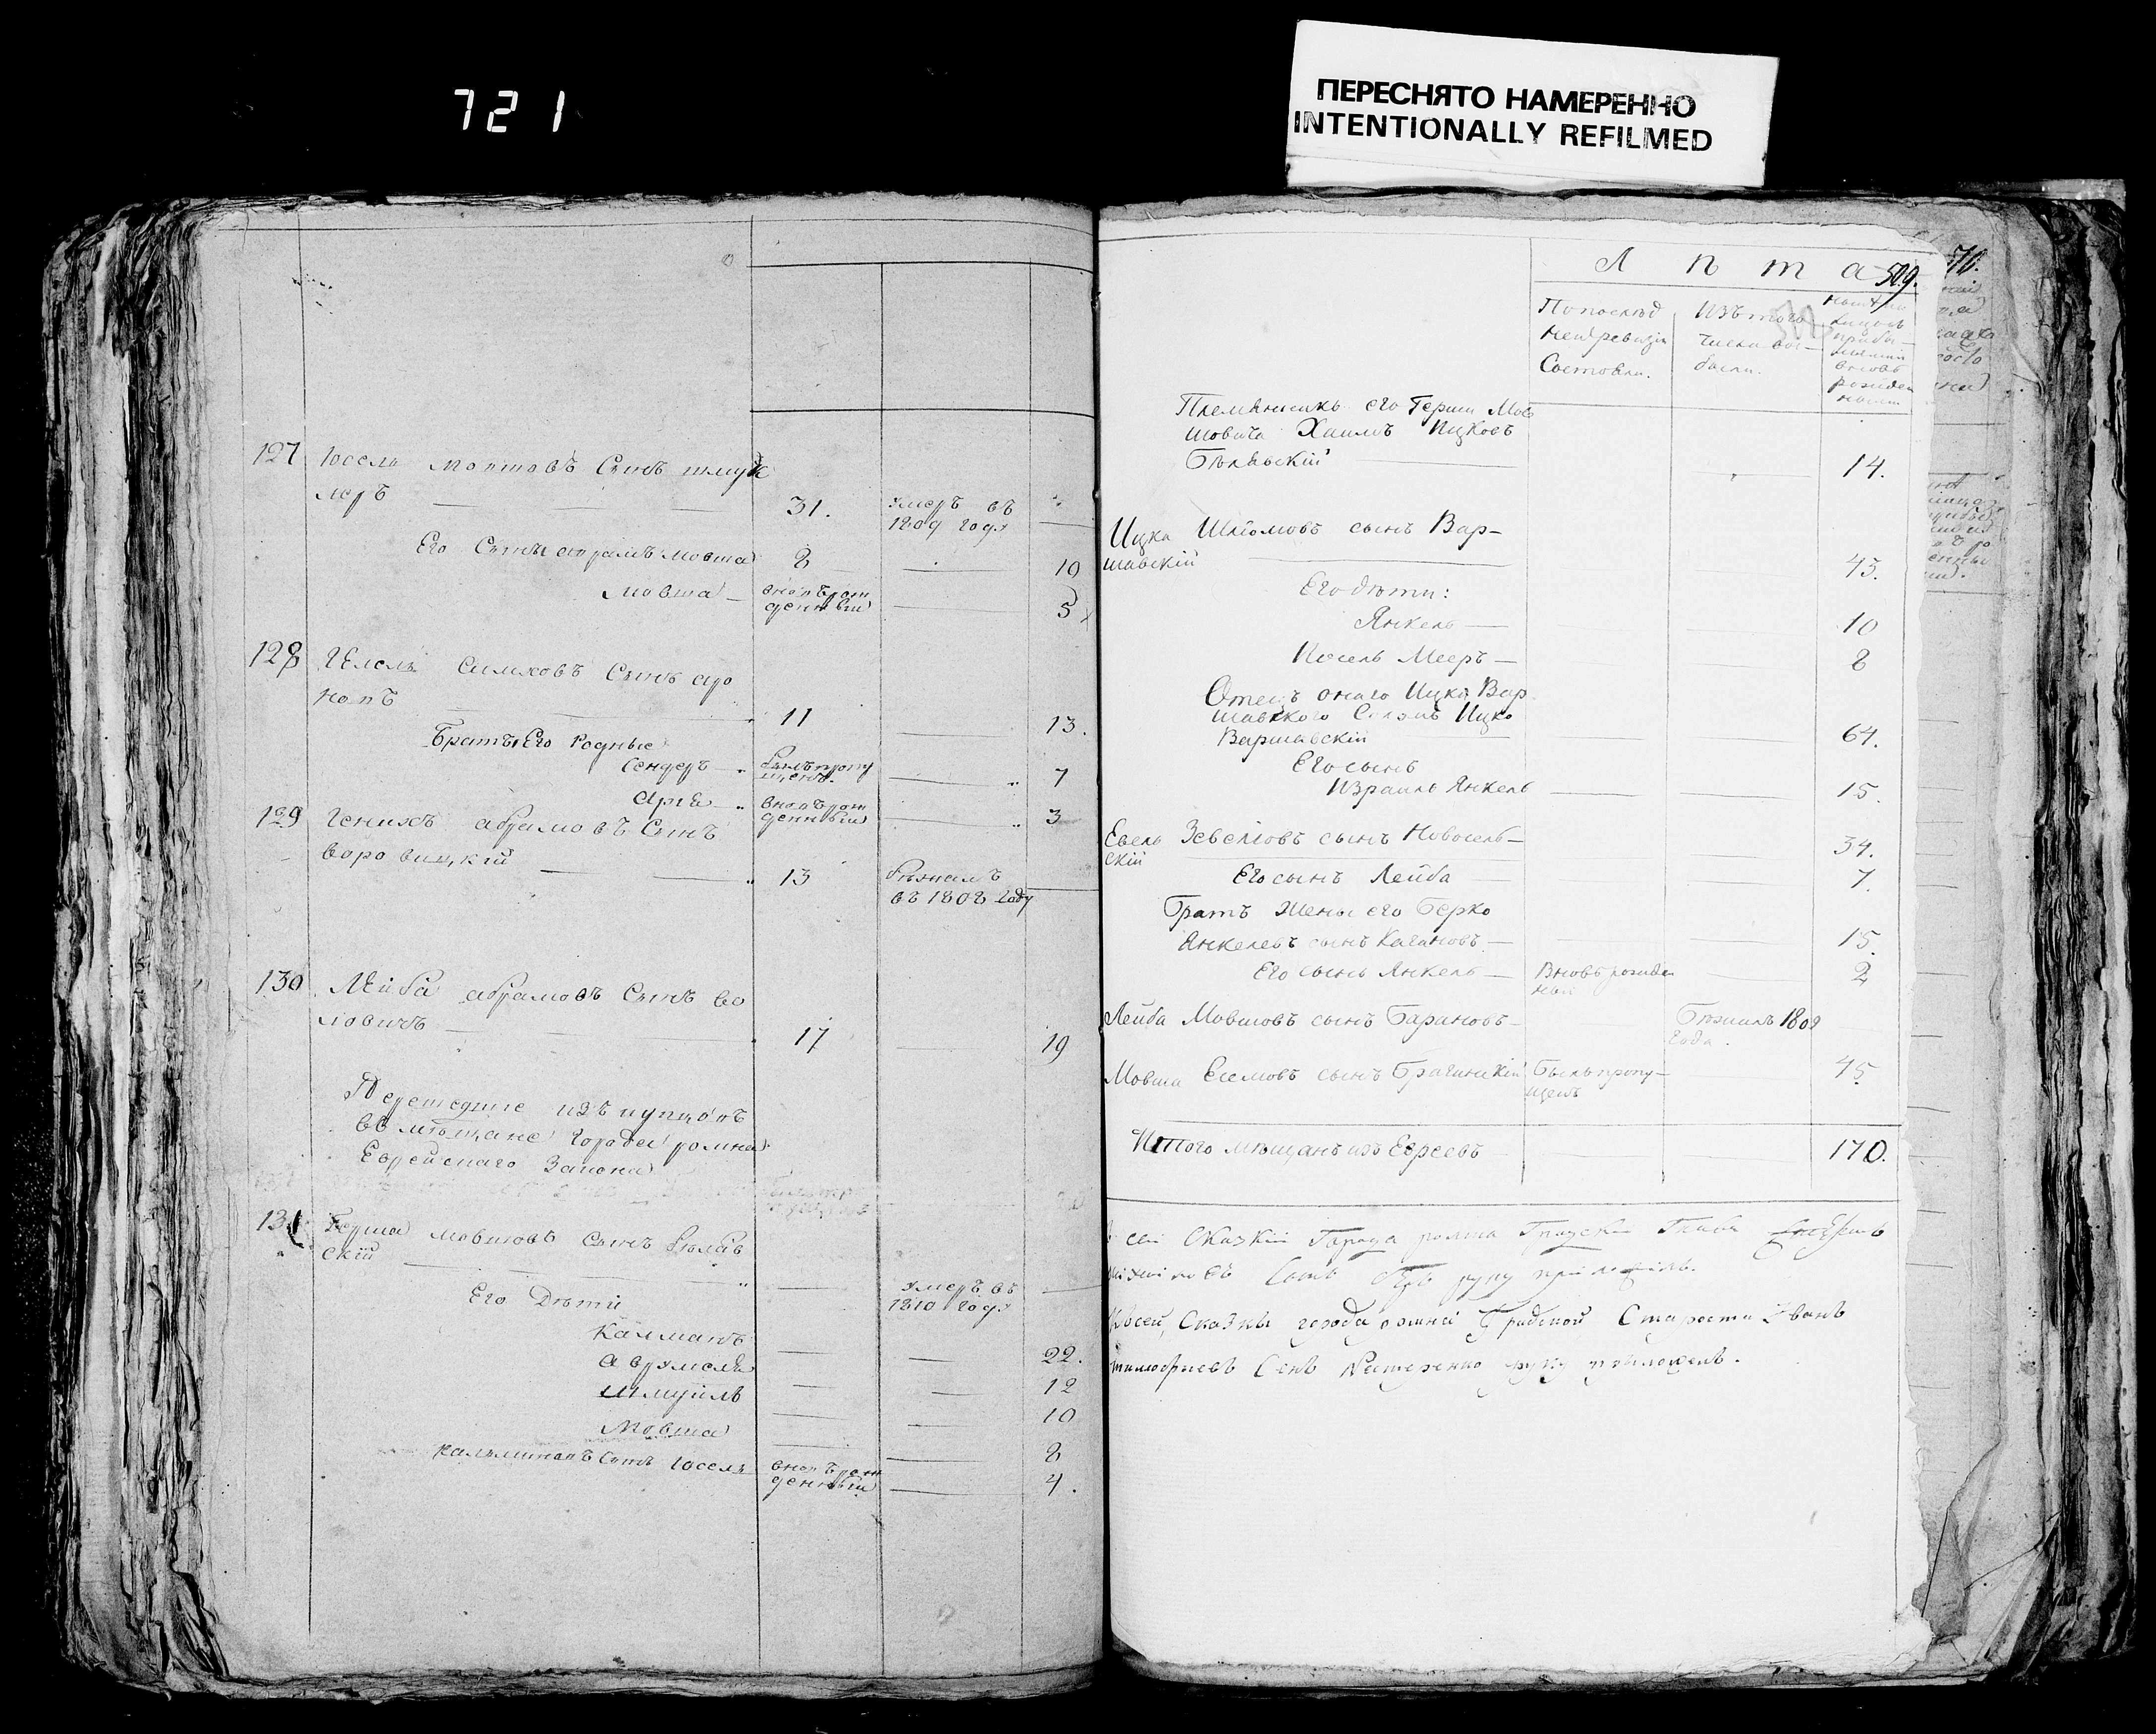 721
ПЕРЕСНЯТО НАМЕРЕННО
INTENTIONALLY REFILMED
127 Юсель мовшовъ Сынъ шмук
леръ 31. умеръ въ
1809 году
Его Сынъ абрамъ мовша 8 10
Мовша вновьрож
денный 5
128 Симховъ Сынъ аро
новъ 11 13.
Братья Его Родные
Сендеръ былъпропу
щенъ. 7
Арья вновьрож
денный 3
129 Генихъ абрамовъ Сынъ
воровицкій 13 бежалъ
въ 1808 году
130 Лейба абрамовъ Сынъ во
ловичь 17 19
Перешедшие изъ купцовъ
въ мѣщане города ромна
Еврейскаго Закона
131 Герша мовшовъ Сынъ Бѣляв
скій умеръ въ
1810 году
Его Дѣти
Калманъ 22.
аврумель 12
шмуйль 10
Мовша 8
калмановъ Сынъ Юсель вновьрож
денный 4.
Л ѣ т а 509.
По послѣд
ней ревизіи
Состояли.
Изъ того
числа вы
были.
570.
Племянникъ его Герши Мов
шовича Хаимъ Ицковъ
Бѣлявскій 14.
Ицка Шліомовъ сынъ Вар-
шавскій 43.
Его дѣти:
Янкель 10
Иосель Мееръ 8
Отецъ онаго Ицка Вар
шавского Ицко
Варшавскій 64.
Его сынъ
Израиль Янкель 15.
Евель Зевелговъ сынъ Новосель-
скій 34.
Его сынъ Лейба 7.
Братъ Жены его Берко
Янкелевъ сынъ Кагановъ 15.
Его сынъ Янкель Вновь рожден
ный 2
Лейба Мовшовъ сынъ Барановъ Бѣжалъ 1808
года.
Мовша сынъ Брагинскій Былъ пропу-
щенъ 45.
Итого мѣщанъ изъ Евреевъ 170.
сей Сказки Города ромна
Сынъ руку приложилъ.
Косей Сказки города ромна Градской Староста Иванъ
тимофѣевъ Сынъ Нестеренко руку приложилъ.